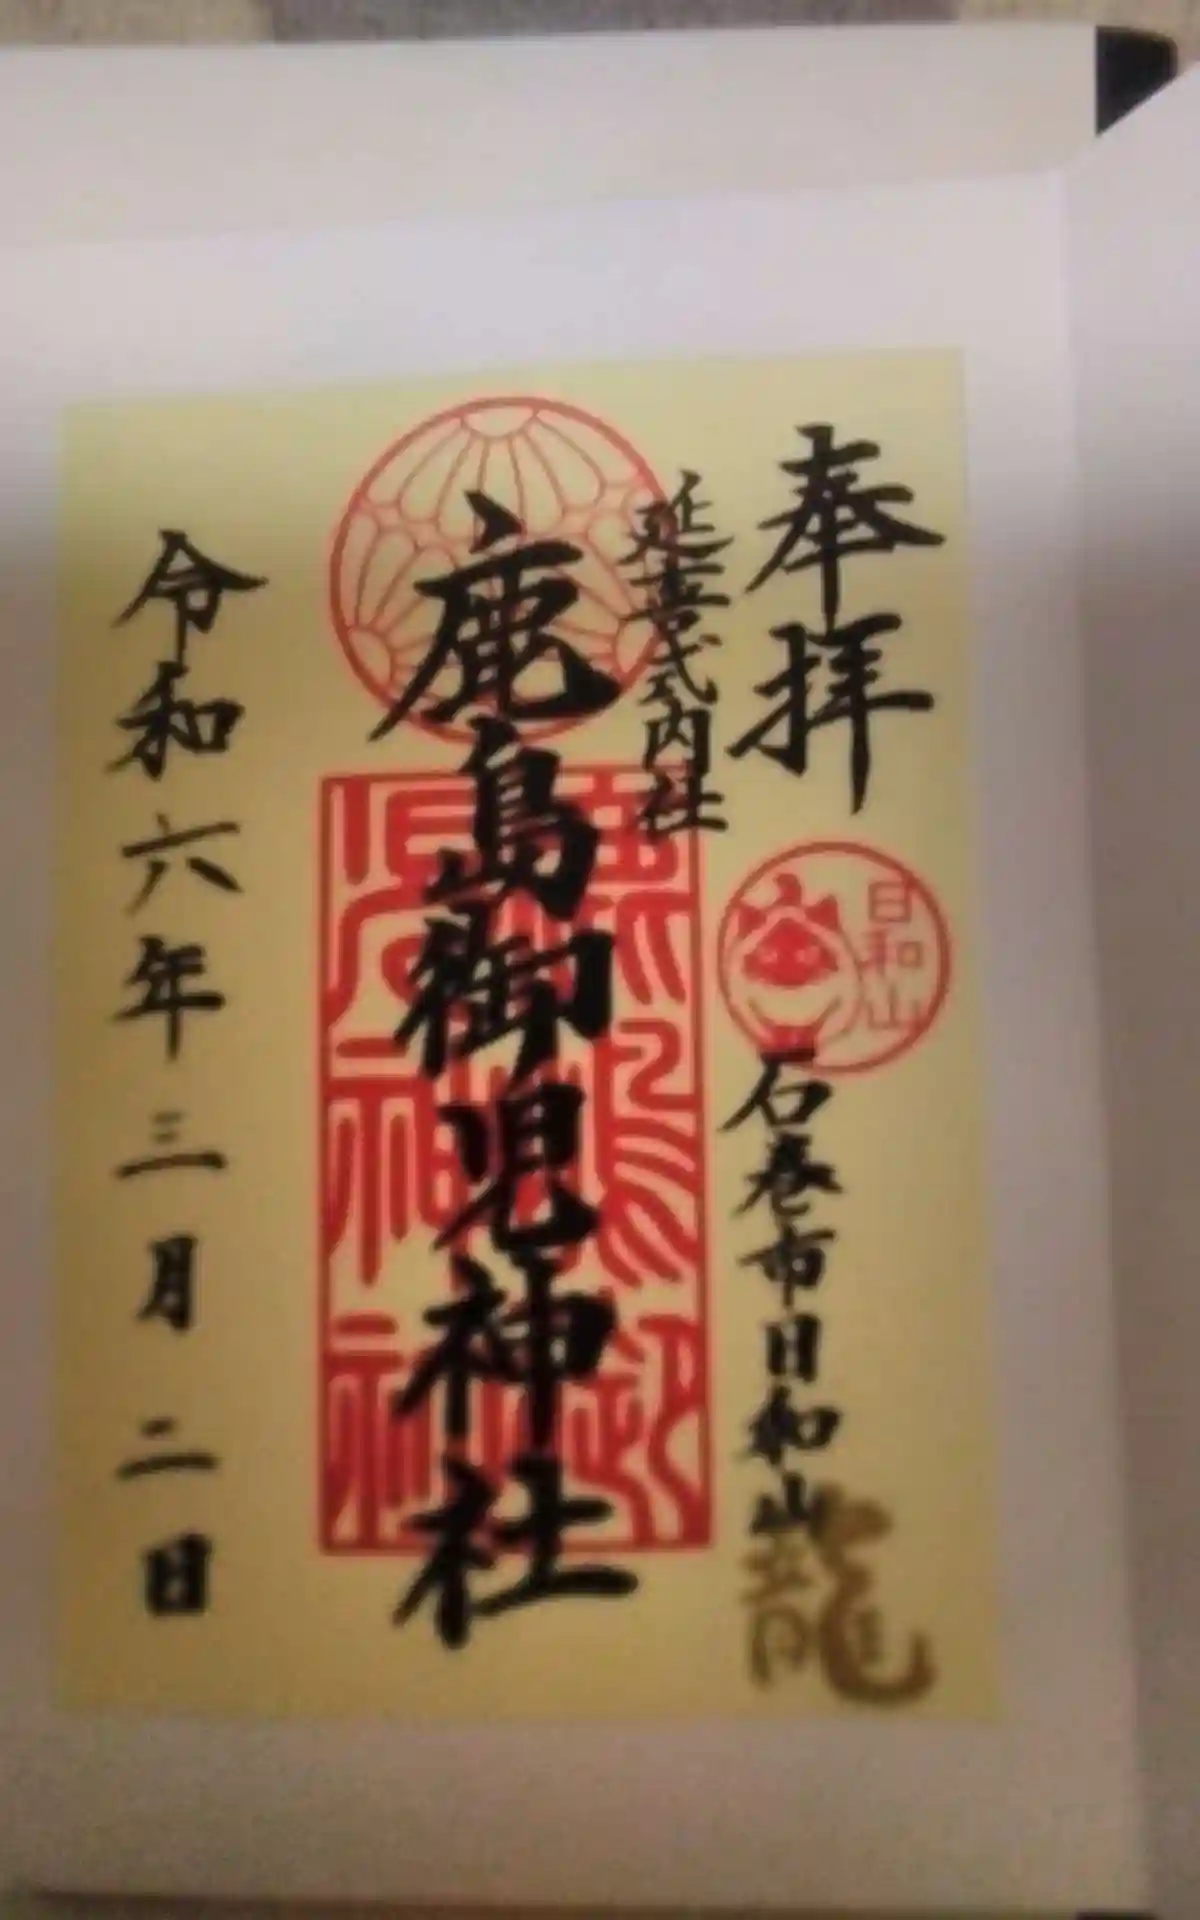 奉拝
日和山
石巻市日和山
龍
延喜式内社
鹿島御児神社
令和六年三月二日